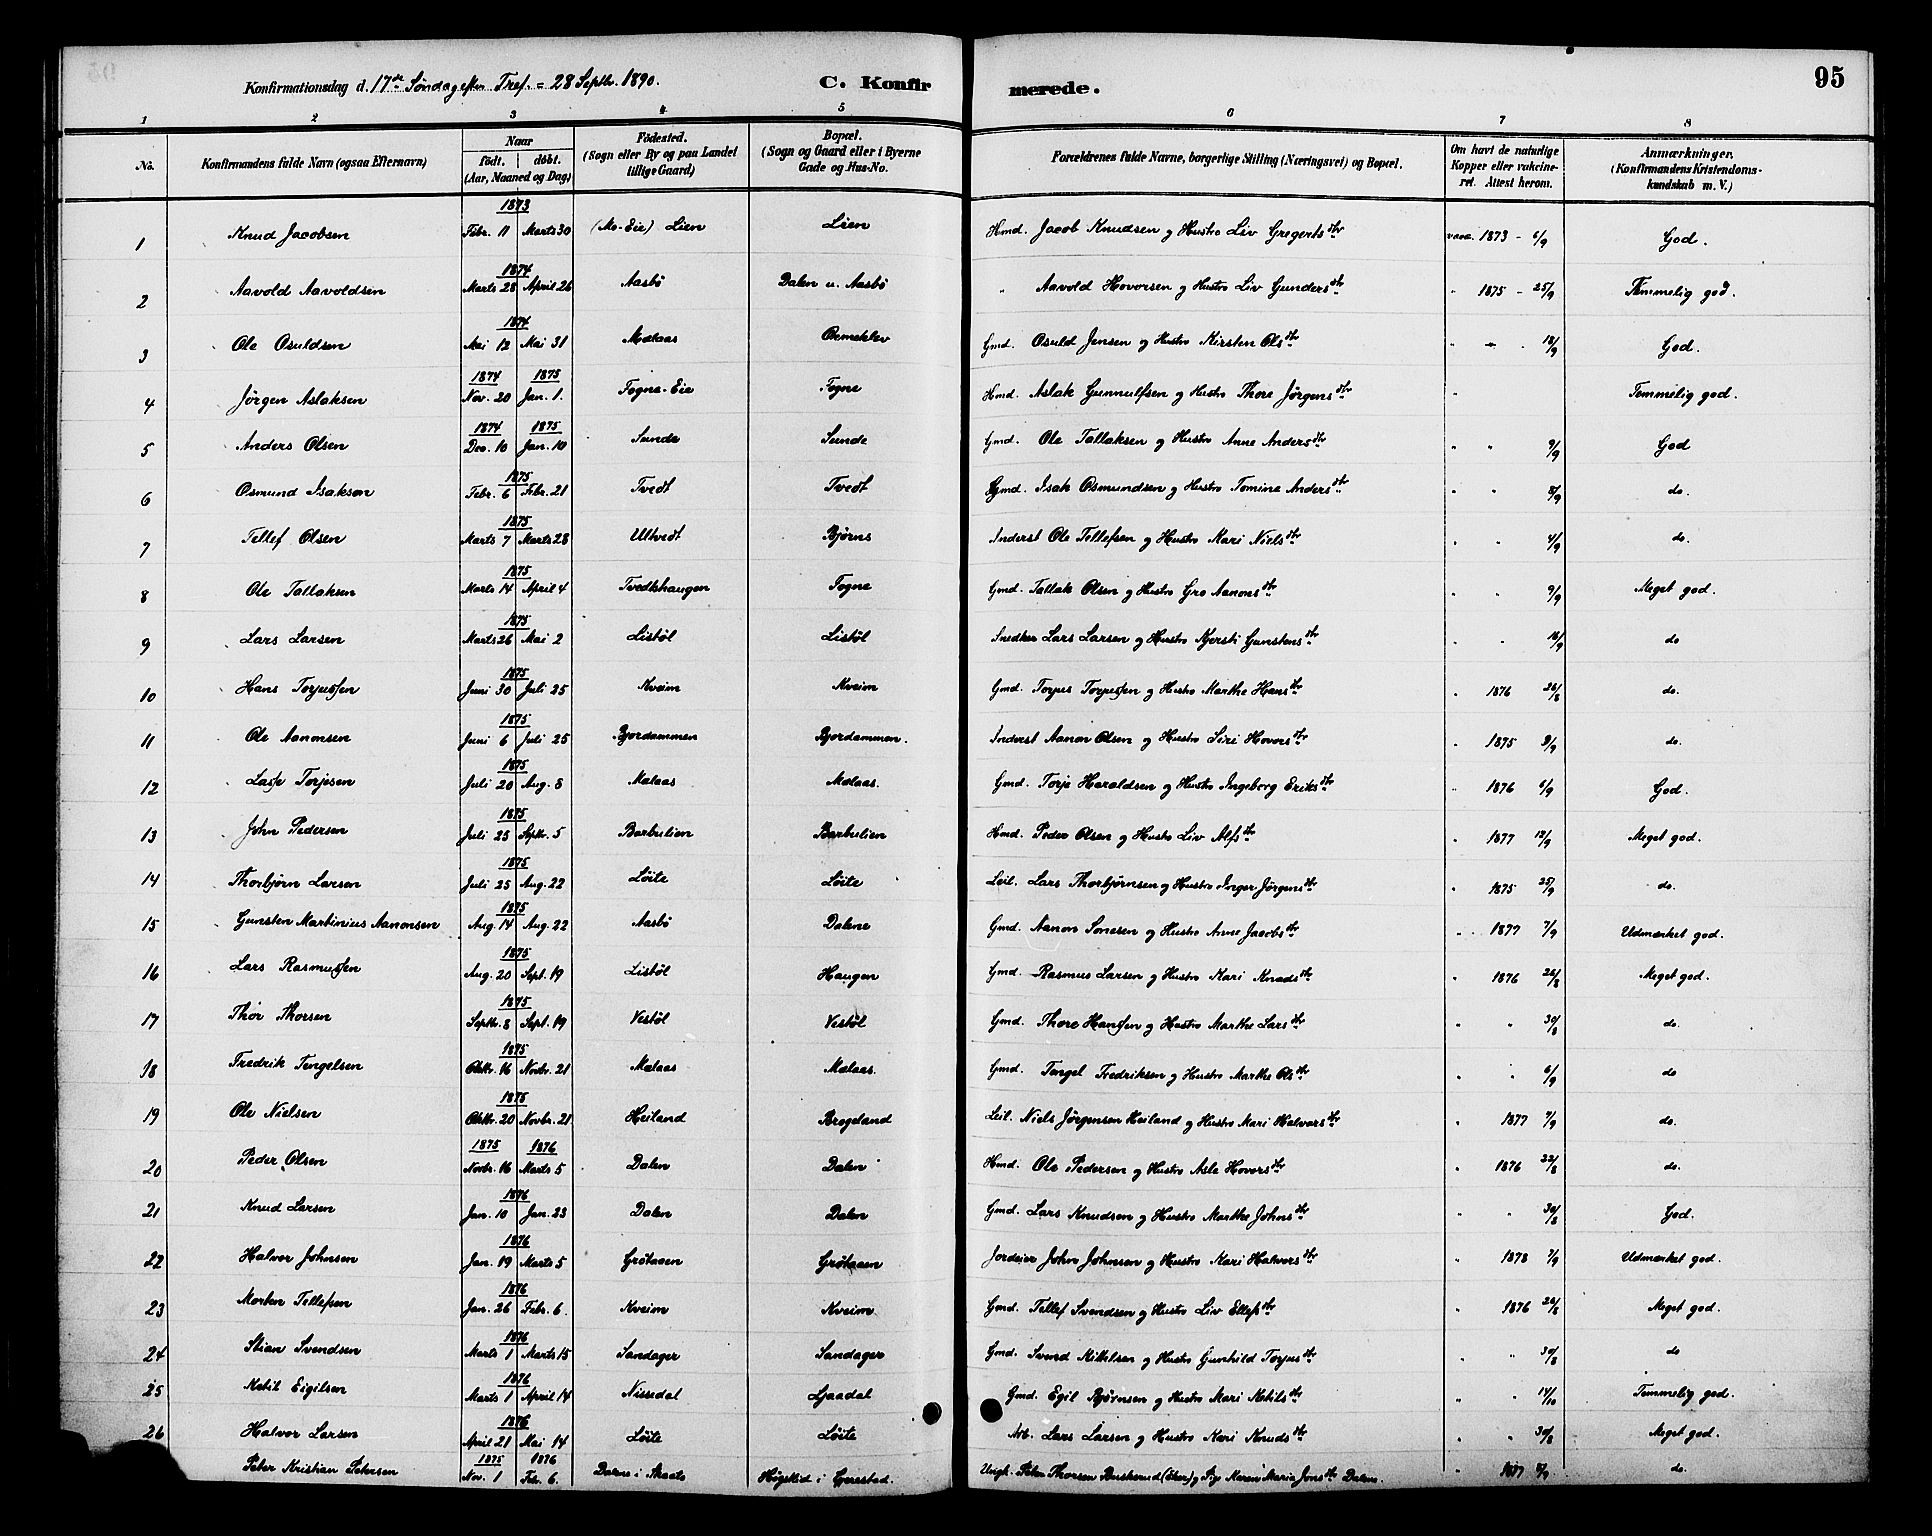 Konfirmationsdag d. 17de Søndag efter Tref. = 28 Septbr. 1890. C. Konfirmerede. 95
1 2 3 4 5 6 7 8
No. Konfirmandens fulde Navn (ogsaa Efternavn) Naar født. døbt. (Aar, Maaned og Dag) Fødested. (Sogn eller By og paa Landet tillige Gaard) Bopæl. (Sogn og Gaard eller i Byerne Gade og Hus-No. Forældrenes fulde Navne, borgerlige Stilling (Næringsvei) og Bopæl. Om havt de naturlige Kopper eller vakcineret. Attest herom. Anmærkninger. (Konfirmandens Kristendomskundskab m. V.)
1873
1 Knud Jacobsen Febr. 11 Marts 30 (Mo-Eie) Lien Lien Hmd. Jacob Knudsen g Hustro Liv Gregerts dtr vacc. 1873 - 6/9 God.
1874
2 Aavold Aavoldsen Marts 28 April 26 Aasbø Dalen u. Aasbø " Aavold Hovorsen g Hustro Liv Gunders dtr " 1875 - 25/9 Temmelig god.
1874
3 Ole Osuldsen Mai 12 Mai 31 Mælaas Gmd. Osuld Jensen g Hustro Kirsten Ols dtr " " 18/9 God.
1874 1875
4 Jørgen Aslaksen Nov. 20 Jan. 1. Fogne-Eie Fogne Hmd. Aslak Gunnulfsen g Hustro Thore Jørgens dtr " Temmelig god.
1874 1875
5 Anders Olsen Dec. 10 Jan. 10 Sunde Sunde Gmd. Ole Tallaksen g Hustro Anne Anders dtr " " 9/9 God
1875
6 Osmund Isaksen Febr. 6 Febr. 21 Tvedt Tvedt Gmd. Isak Osmundsen g Hustro Tomine Anders dtr " " 8/9 do.
1875
7 Tellef Olsen Marts 7 Marts 28 Ultvedt Bjørns Inderst Ole Tellefsen g Hustro Mari Niels dtr " " 4/9 do.
1875
8 Ole Tallaksen Marts 14 April 4 Tvedtshaugen Fogne Gmd. Tallak Olsen g Hustro Gro Aanons dtr " " 9/9 Meget god.
1875
9 Lars Larsen Marts 26 Mai 2 Listøl Listøl Snedker Lars Larsen g Hustro Kjersti Gunstens dtr " " 16/9 do
1875
10 Hans Torjussen Juni 30 Juli 25 Kveim Kveim Gmd. Torjus Torjussen g Hustro Marthe Hans dtr " 1876 26/8 do.
1875
11 Ole Aanonsen Juni 6 Juli 25 Bjordammen Bjordammen. Inderst Aanon Olsen g Hustro Siri Hovors dtr " 1875 9/9 do.
1875
12 Lasse Torjesen Juli 20 Aug. 8 Mælaas Mælaas. Gmd. Torje Haraldsen g Hustro Ingeborg Eriks dtr " 1876 6/9 God.
1875
13 John Pedersen Juli 25 Septbr. 5 Barbulien Barbulien Hmd. Peder Olsen g Hustro Liv Alfs dtr " 1877 12/9 Meget god.
1875
14 Thorbjørn Larsen Juli 25 Aug. 22 Løite Løite Leil. Lars Thorbjørnsen g Hustro Inger Jørgens dtr " 1875 25/9 do.
1875
15 Gunsten Martinius Aanonsen Aug. 14 Aug. 22 Aasbø Dalene Gmd. Aanon Sønesen g Hustro Anne Jacobs dtr " 1877 7/9 Udmærket god.
1875
16 Lars Rasmussen Aug. 20 Sept. 19 Listøl Haugen Gmd. Rasmus Larsen g Hustro Kari Knuds dtr " 1876 26/8 Meget god.
1875
17 Thor Thorsen Septbr. 8 Sept. 19 Vestøl Vestøl Gmd. Thore Hanssen g Hustro Marthe Lars dtr " " 30/8 do.
1875
18 Fredrik Tengelsen Oktbr. 16 Novbr. 21 Mælaas Mælaas. Gmd. Tengel Fredriksen g Hustro Marthe Ols dtr " " 6/9 do
1875
19 Ole Nielsen Oktbr. 20 Novbr. 21 Heiland Brøgeland Leil. Niels Jørgensen Heiland g Hustro Mari Halvors dtr " 1877 7/9 do.
1875 1876
20 Peder Olsen Novbr. 16 Marts 5 Dalen Dalen Hmd. Ole Pedersen g Hustro Asle Hovors dtr " 1876 22/8 do.
1876
21 Knud Larsen Jan. 10 Jan. 23 Dalen Dalen Gmd. Lars Knudsen g Hustro Marthe Johns dtr " " 30/8 God.
1876
22 Halvor Johnsen Jan. 19 Marts 5 Grøtaaen Grøtaaen Jordeier John Johnsen g Hustro Kari Halvors dtr " 1878 7/9 Udmærket god.
1876
23 Morten Tellefsen Jan. 26 Febr. 6. Kveim Kveim Gmd. Tellef Svendsen g Hustro Liv Ellefs dtr " 1876 26/8 Meget god.
1876
24 Stian Svendsen Marts 1 Marts 15 Sandager Sandager Gmd. Svend Mikkelsen g Hustro Gunhild Torjus dtr " " 30/8 do
1876
25 Ketil Eigilsen Marts 1 April 14 Nissedal Ljaadal Gmd. Egil Bjørnsen g Hustro Mari Ketils dtr " " 14/10 Temmelig god.
1876
26 Halvor Larsen April 21 Mai 14 Løite Løite Arb. Lars Larsen g Hustro Kari Knuds dtr " " 30/8 Meget god.
1875 1876
Peter Kristian Petersen Nov. 1 Feb. 6. Dalene i Skaate Høgelid i Gjerestad. Ungk. Peter Thorsen Buskerud (Eker) g Pige Maren Maria Jons dtr Dalene. " 1877 do.